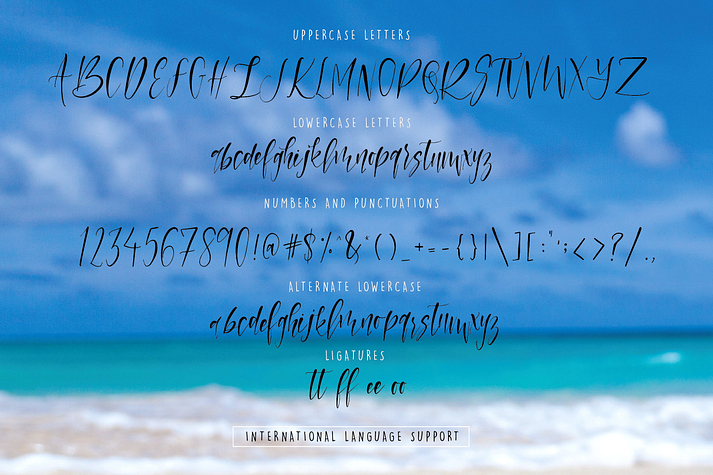 UPPERCASE LETTERS
ABCDEFGHIJKLMNOPQRSTUVWXYZ
LOWERCASE LETTERS
abcdefghijklmnopqrstuvwxyz
NUMBERS AND PUNCTUATIONS
1234567890!@#$%^&*()_+=-{}|\][:"';<>?/.,
ALTERNATE LOWERCASE
abcdefghijklmnopqrstuvwxyz
LIGATURES
tt ff ee oo
INTERNATIONAL LANGUAGE SUPPORT